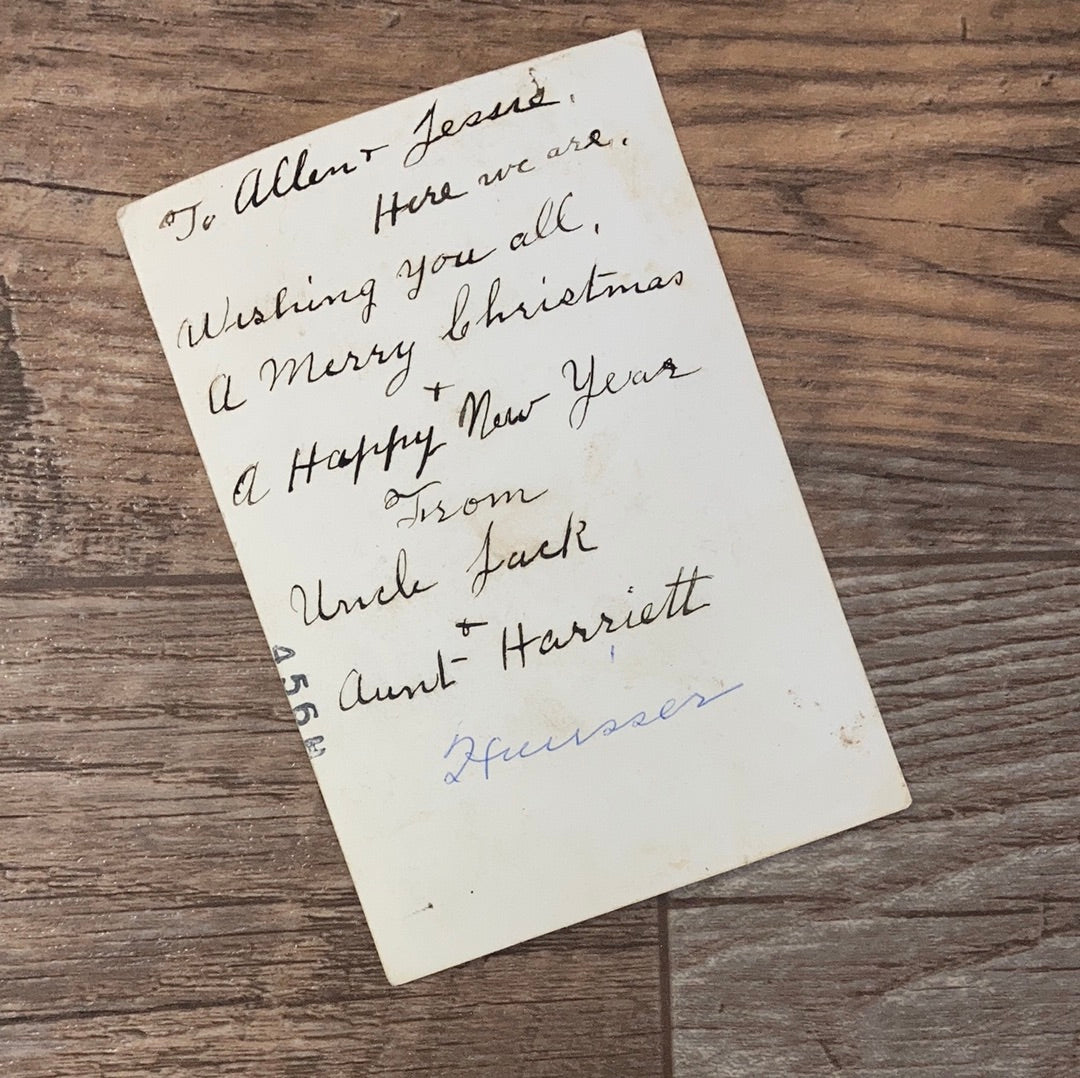 To Allen + Jessie,
Here we are,
Wishing you all,
A Merry Christmas
+
A Happy New Year
From
Uncle Jack
+
Aunt Harriett
456